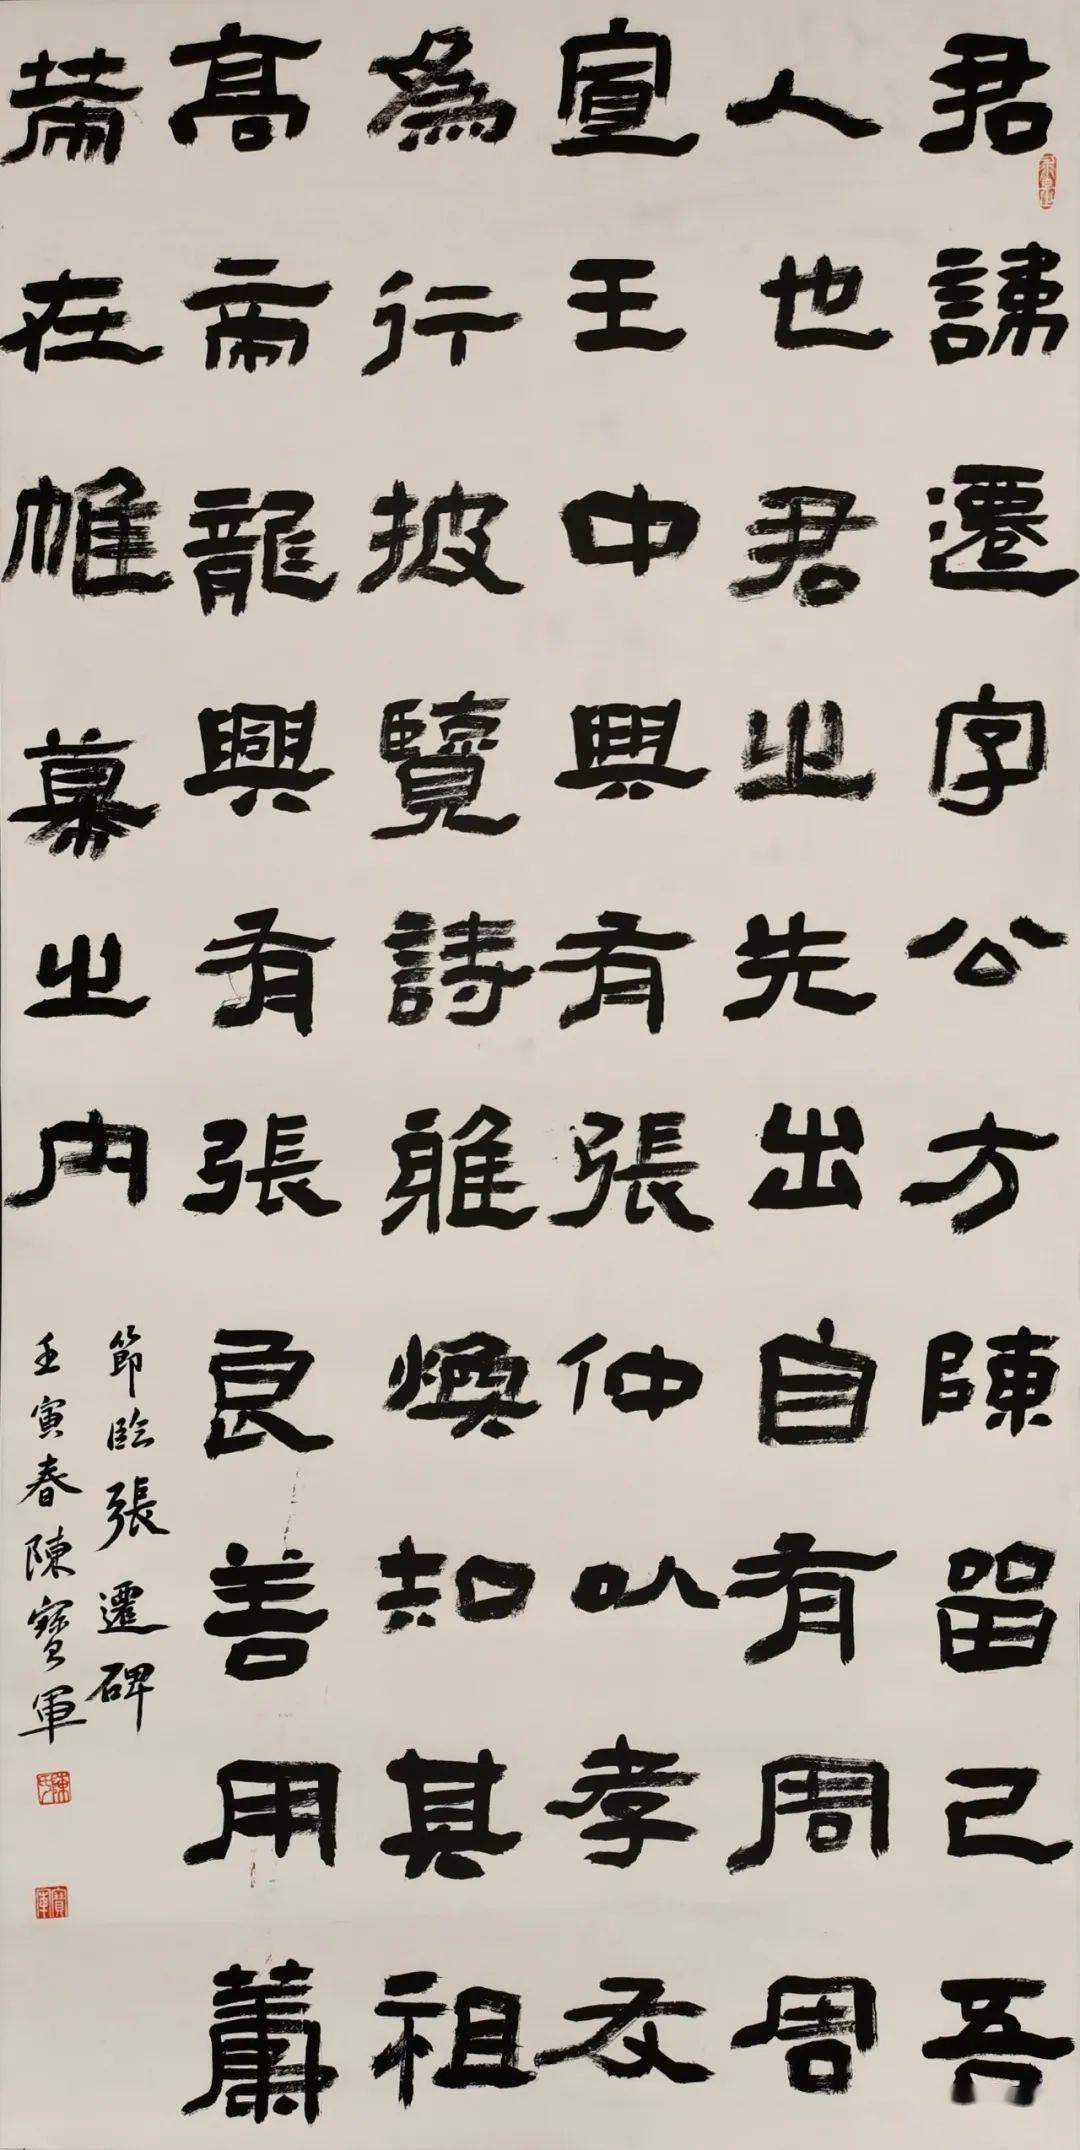 君諱遷字公方陳留己吾
人也君之先出自有周周
宣王中興有張仲以孝友
為行披覽詩雅煥知其祖
高帝龍興有張良善用籌
策在帷幕之內
節臨張遷碑
壬寅春陳寶軍
陳氏
寶軍